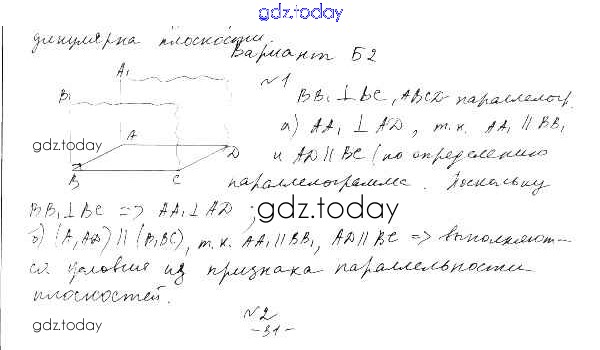 gdz.today
дикулярна плоскости.
Вариант Б2
№1
A₁
B₁
BB₁ ⊥ BC, ABCD параллелогр.
gdz.today
A
D
B
C
а) AA₁ ⊥ AD, т.к. AA₁ ∥ BB₁
и AD ∥ BC (по определению
параллелограмма. Поскольку
BB₁ ⊥ BC => AA₁ ⊥ AD;
gdz.today
б) (A₁AD) ∥ (B₁BC), т.к. AA₁ ∥ BB₁, AD ∥ BC => выполняют-
ся условия из признака параллельности
плоскостей.
№2
gdz.today
-31-